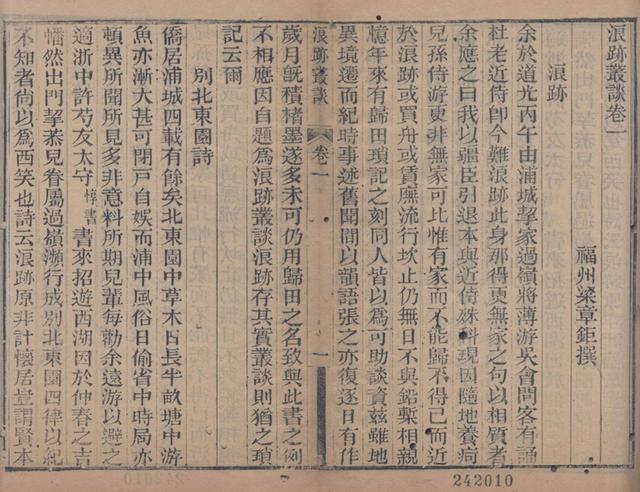 浪跡叢談卷一
福州梁章鉅撰
浪跡
余於道光丙午由浦城挈家過嶺將薄游吳會問客有誦
杜老近侍即今難浪跡此身那得更無家之句以相質者
余應之曰我以疆臣引退本與近侍殊科現因隨地養疴
兒孫侍游更非無家可比惟有家而不能歸不得已而近
於浪跡或買舟或賃廡流行坎止仍無日不與鉛槧相親
憶年來有歸田瑣記之刻同人皆以為可助談資茲雖地
異境遷而紀時事述舊聞間以韻語張之亦復逐日有作
浪跡叢談
卷一
一
歲月旣積楮墨遂多未可仍用歸田之名致與此書之例
不相應因自題為浪跡叢談浪跡存其實叢談則猶之瑣
記云爾
別北東園詩
僑居浦城四載有餘矣北東園中草木日長半畝塘中游
魚亦漸大甚可閉戶自娛而浦中風俗日偷省中時局亦
頓異所聞所見多非意料所期兒輩每勸余遠游以避之
適浙中許芍友太守惇書書來招遊西湖因於仲春之吉
幡然出門挈恭兒眷屬過嶺瀕行成別北東園四律以紀
不知者尙以為西笑也詩云浪跡原非計懷居豈謂賢本
242010